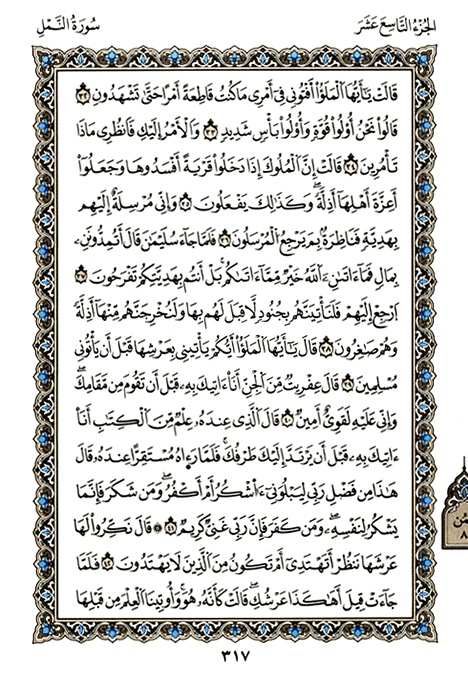 الجُزْءُ التَّاسِعَ عَشَرَ
سُورَةُ النَّمْلِ
قَالَتْ يَٰٓأَيُّهَا ٱلْمَلَؤُا۟ أَفْتُونِى فِىٓ أَمْرِى مَا كُنتُ قَاطِعَةً أَمْرًا حَتَّىٰ تَشْهَدُونِ
قَالُوا۟ نَحْنُ أُو۟لُوا۟ قُوَّةٍ وَأُو۟لُوا۟ بَأْسٍ شَدِيدٍ وَٱلْأَمْرُ إِلَيْكِ فَٱنظُرِى مَاذَا
تَأْمُرِينَ قَالَتْ إِنَّ ٱلْمُلُوكَ إِذَا دَخَلُوا۟ قَرْيَةً أَفْسَدُوهَا وَجَعَلُوٓا۟
أَعِزَّةَ أَهْلِهَآ أَذِلَّةً ۖ وَكَذَٰلِكَ يَفْعَلُونَ وَإِنِّى مُرْسِلَةٌ إِلَيْهِم
بِهَدِيَّةٍ فَنَاظِرَةٌۢ بِمَ يَرْجِعُ ٱلْمُرْسَلُونَ فَلَمَّا جَآءَ سُلَيْمَٰنَ قَالَ أَتُمِدُّونَنِ
بِمَالٍ فَمَآ ءَاتَىٰنِۦَ ٱللَّهُ خَيْرٌ مِّمَّآ ءَاتَىٰكُم بَلْ أَنتُم بِهَدِيَّتِكُمْ تَفْرَحُونَ
ٱرْجِعْ إِلَيْهِمْ فَلَنَأْتِيَنَّهُم بِجُنُودٍ لَّا قِبَلَ لَهُم بِهَا وَلَنُخْرِجَنَّهُم مِّنْهَآ أَذِلَّةً
وَهُمْ صَٰغِرُونَ قَالَ يَٰٓأَيُّهَا ٱلْمَلَؤُا۟ أَيُّكُمْ يَأْتِينِى بِعَرْشِهَا قَبْلَ أَن يَأْتُونِى
مُسْلِمِينَ قَالَ عِفْرِيتٌ مِّنَ ٱلْجِنِّ أَنَا۠ ءَاتِيكَ بِهِۦ قَبْلَ أَن تَقُومَ مِن مَّقَامِكَ ۖ
وَإِنِّى عَلَيْهِ لَقَوِىٌّ أَمِينٌ قَالَ ٱلَّذِى عِندَهُۥ عِلْمٌ مِّنَ ٱلْكِتَٰبِ أَنَا۠
ءَاتِيكَ بِهِۦ قَبْلَ أَن يَرْتَدَّ إِلَيْكَ طَرْفُكَ ۚ فَلَمَّا رَءَاهُ مُسْتَقِرًّا عِندَهُۥ قَالَ
هَٰذَا مِن فَضْلِ رَبِّى لِيَبْلُوَنِىٓ ءَأَشْكُرُ أَمْ أَكْفُرُ ۖ وَمَن شَكَرَ فَإِنَّمَا
يَشْكُرُ لِنَفْسِهِۦ ۖ وَمَن كَفَرَ فَإِنَّ رَبِّى غَنِىٌّ كَرِيمٌ ۞ قَالَ نَكِّرُوا۟ لَهَا
عَرْشَهَا نَنظُرْ أَتَهْتَدِىٓ أَمْ تَكُونُ مِنَ ٱلَّذِينَ لَا يَهْتَدُونَ فَلَمَّا
جَآءَتْ قِيلَ أَهَٰكَذَا عَرْشُكِ ۖ قَالَتْ كَأَنَّهُۥ هُوَ ۚ وَأُوتِينَا ٱلْعِلْمَ مِن قَبْلِهَا
٣١٧